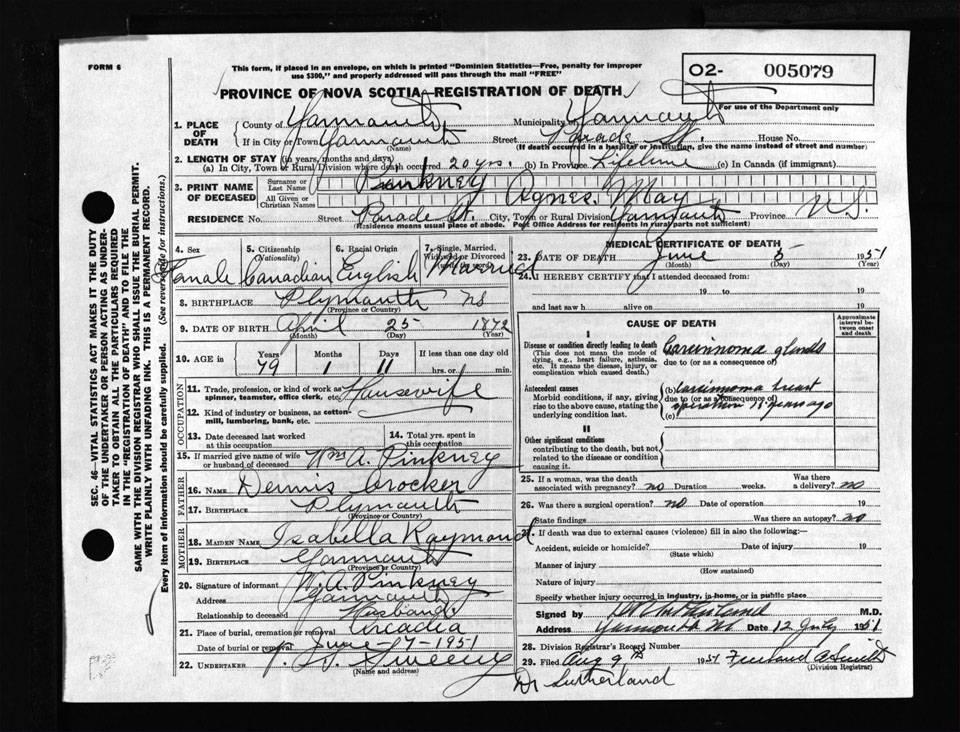 FORM 6
This form, if placed in an envelope, on which is printed "Dominion Statistics—Free, penalty for improper
use $300," and properly addressed will pass through the mail "FREE"
O2- 005079
For use of the Department only
PROVINCE OF NOVA SCOTIA—REGISTRATION OF DEATH
1. PLACE OF DEATH
County of Yarmouth Municipality of Yarmouth
If in City or Town Yarmouth Street Parade St. House No.
(Name) (If death occurred in a hospital or institution, give the name instead of street and number)
2. LENGTH OF STAY (in years, months and days)
(a) In City, Town or Rural Division where death occurred 20 yrs. (b) In Province Lifetime (c) In Canada (if immigrant)
3. PRINT NAME OF DECEASED
Surname or Last Name Pinkney
All Given or Christian Names Agnes May
RESIDENCE No. Street Parade St. City, Town or Rural Division Yarmouth Province N.S.
(Residence means usual place of abode. Post Office Address for residents in rural parts not sufficient)
SEC. 46—VITAL STATISTICS ACT MAKES IT THE DUTY
OF THE UNDERTAKER OR PERSON ACTING AS UNDER-
TAKER TO OBTAIN ALL THE PARTICULARS REQUIRED
IN THE "REGISTRATION OF DEATH" AND TO FILE THE
SAME WITH THE DIVISION REGISTRAR WHO SHALL ISSUE THE BURIAL PERMIT.
WRITE PLAINLY WITH UNFADING INK. THIS IS A PERMANENT RECORD.
Every item of information should be carefully supplied. (See reverse side for instructions.)
4. Sex 5. Citizenship (Nationality) 6. Racial Origin 7. Single, Married, Widowed or Divorced
Female Canadian English Married
8. BIRTHPLACE Plymouth NS
(Province or Country)
9. DATE OF BIRTH April 25 1872
(Month) (Day) (Year)
10. AGE in Years Months Days If less than one day old
79 1 11 hrs. or min.
OCCUPATION
11. Trade, profession, or kind of work as spinner, teamster, office clerk, etc. Housewife
12. Kind of industry or business, as cotton-mill, lumbering, bank, etc.
13. Date deceased last worked at this occupation
14. Total yrs. spent in this occupation
15. If married give name of wife or husband of deceased Wm A. Pinkney
FATHER
16. NAME Dennis Crocker
17. BIRTHPLACE Plymouth
(Province or Country)
MOTHER
18. MAIDEN NAME Isabella Raymond
19. BIRTHPLACE Yarmouth
(Province or Country)
20. Signature of informant W. A. Pinkney
Address Yarmouth
Relationship to deceased Husband.
21. Place of burial, cremation or removal Arcadia
Date of burial or removal June 7-1951
22. UNDERTAKER Sweeny
(Name and address)
MEDICAL CERTIFICATE OF DEATH
23. DATE OF DEATH June 5 1951
(Month) (Day) (Year)
24. I HEREBY CERTIFY that I attended deceased from:
19 to 19
and last saw h alive on 19
CAUSE OF DEATH
Approximate interval between onset and death
I
Disease or condition directly leading to death
(This does not mean the mode of dying, e.g., heart failure, asthenia, etc. It means the disease, injury, or complication which caused death.)
(a) Carcinnoma glands
due to (or as a consequence of)
Antecedent causes
Morbid conditions, if any, giving rise to the above cause, stating the underlying condition last.
(b) Carcinnoma breast
due to (or as a consequence of)
operation 15 years ago
(c)
II
Other significant conditions
contributing to the death, but not related to the disease or condition causing it.
25. If a woman, was the death associated with pregnancy? no Duration weeks. Was there a delivery? no
26. Was there a surgical operation? no Date of operation 19
State findings Was there an autopsy? no
27. If death was due to external causes (violence) fill in also the following:—
Accident, suicide or homicide? Date of injury 19
(State which)
Manner of injury
(How sustained)
Nature of injury
Specify whether injury occurred in industry, in home, or in public place
Signed by M.D.
Address Yarmouth NS Date 12 July 1951
28. Division Registrar's Record Number
29. Filed Aug 9th 1951
(Division Registrar)
Dr Sutherland